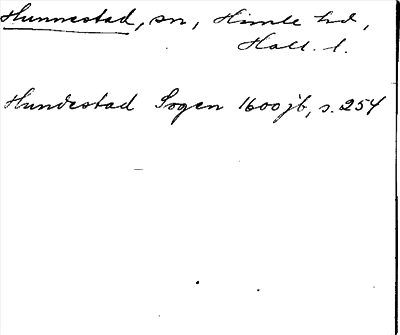 Hunnestad, sn, Himle hd,
Hall. l.
Hundestad Sogen 1600 jb, s. 254